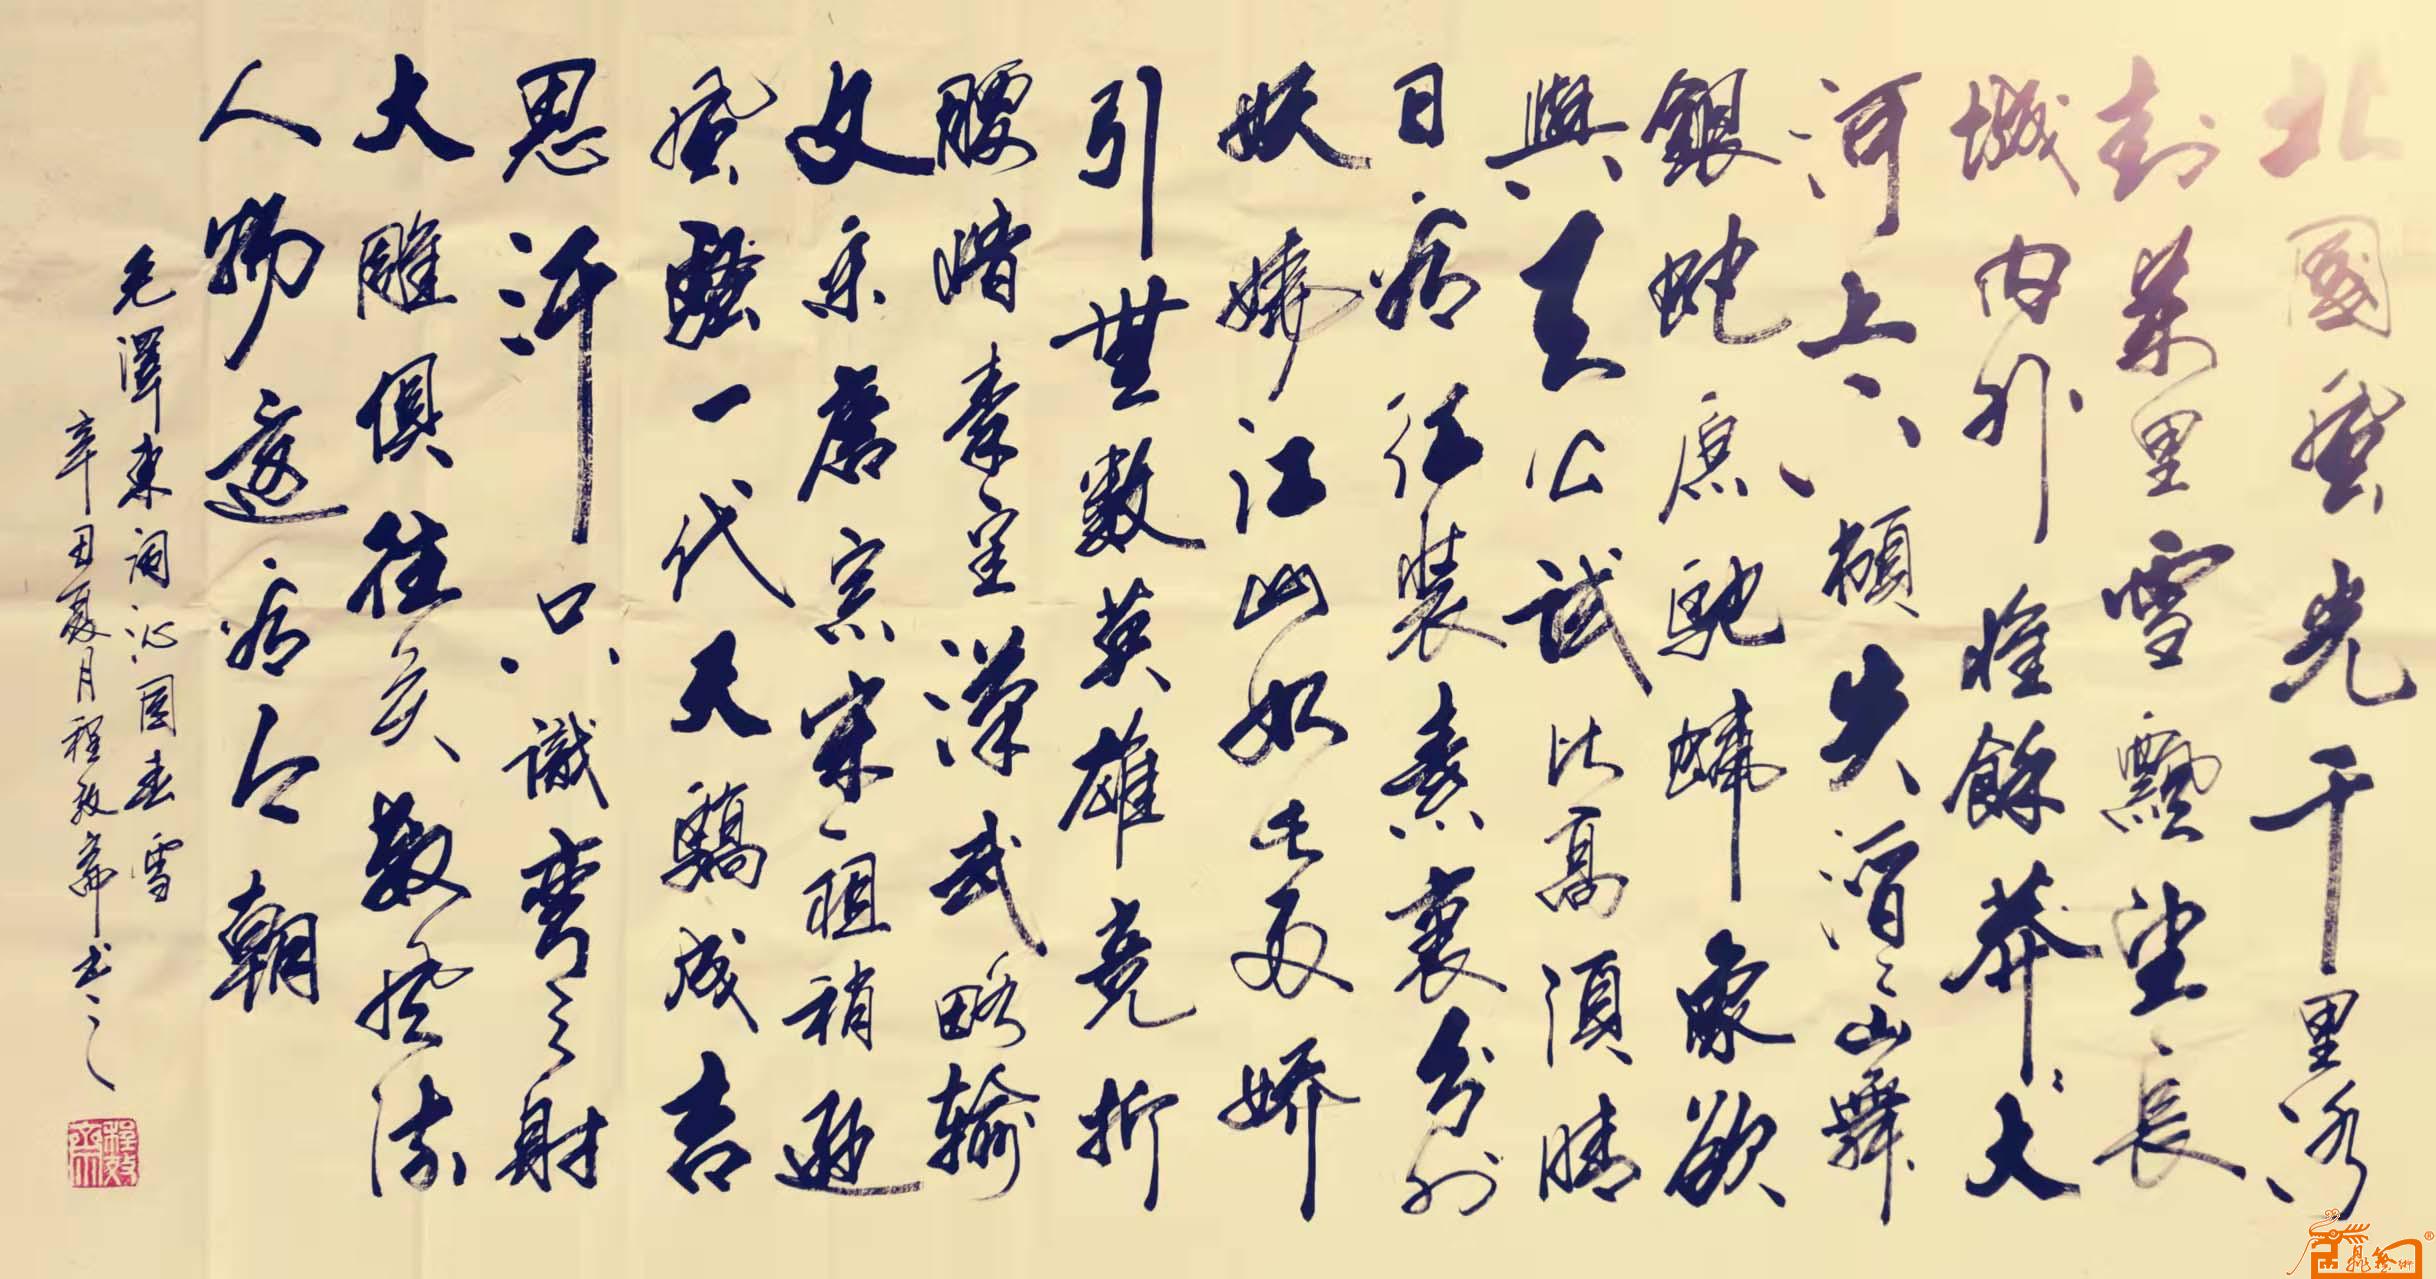 北國風光千里冰
封萬里雪飄望長
城内外惟餘莽々大
河上下頓失滔々山舞
銀蛇原馳蠟象欲
與天公試比高須晴
日看红裝素裹分外
妖嬈江山如此多嬌
引無數英雄競折
腰惜秦皇漢武略輸
文采唐宗宋祖稍遜
風騷一代天驕成吉
思汗只識彎弓射
大雕俱往矣數風流
人物還看今朝
毛澤東詞沁園春雪
辛丑夏月程致齊书之
程致齊